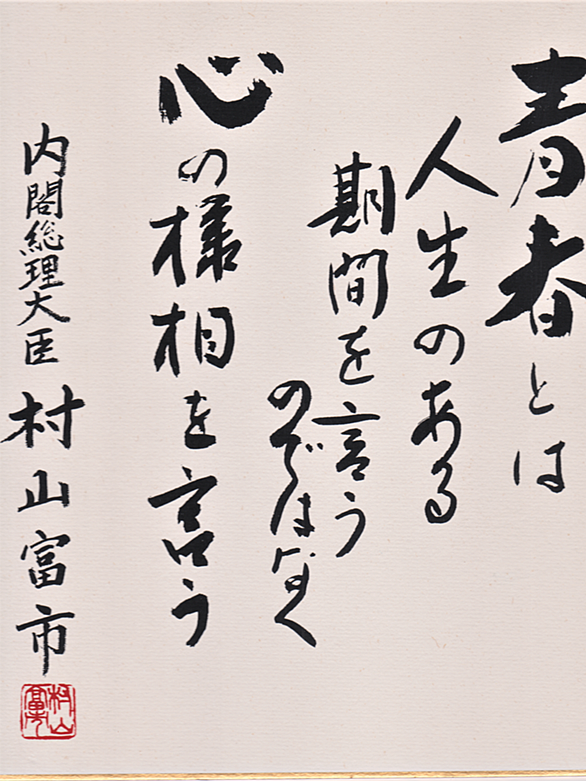 青春とは
人生のある
期間を言う
のではなく
心の様相を言う
内閣総理大臣 村山富市
村山富市